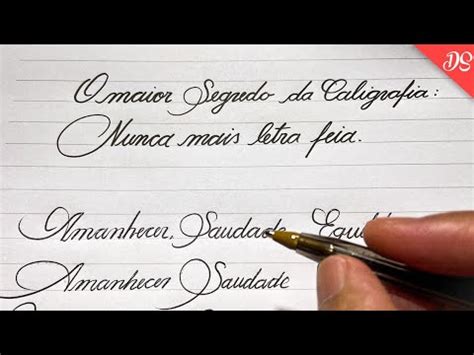 DS
O maior Segredo da Caligrafia:
Nunca mais letra feia.
Amanhecer, Saudade
Amanhecer Saudade